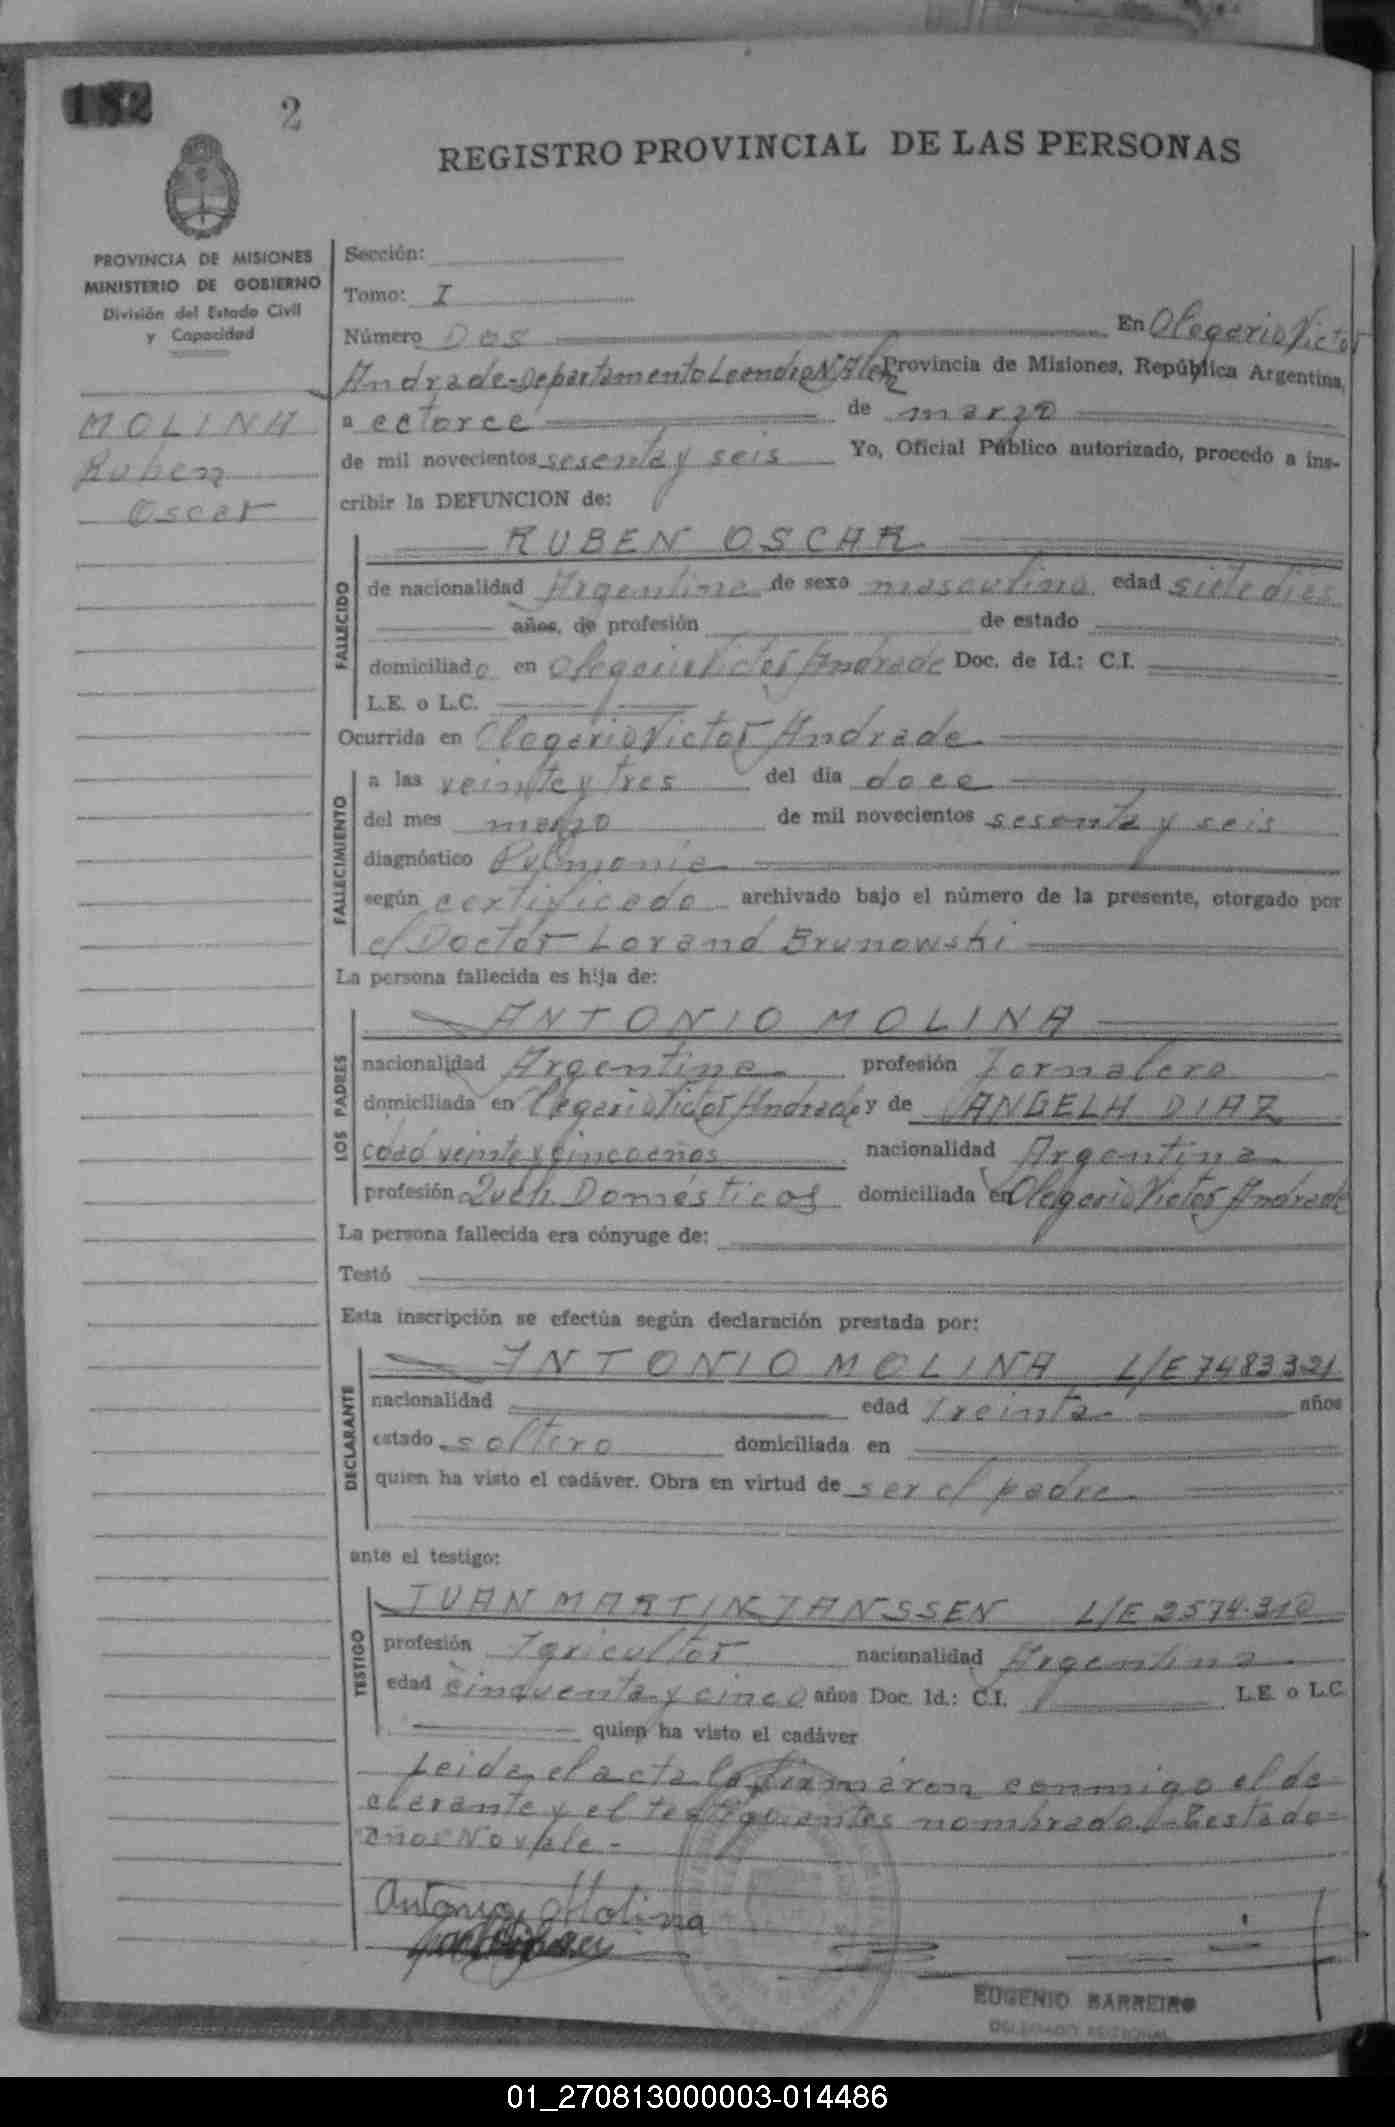 182
2
REGISTRO PROVINCIAL DE LAS PERSONAS
PROVINCIA DE MISIONES
MINISTERIO DE GOBIERNO
División del Estado Civil
y Capacidad
MOLINA
Ruben
Oscar
Sección:
Tomo: I
Número Dos En Olegario Victor
Andrade-Departamento Leandro N. Alem Provincia de Misiones, República Argentina,
a catorce de marzo
de mil novecientos sesenta y seis Yo, Oficial Público autorizado, procedo a ins-
cribir la DEFUNCION de:
RUBEN OSCAR
FALLECIDO
de nacionalidad Argentina de sexo masculino edad siete dies
años, de profesión de estado
domiciliado en Olegario Victor Andrade Doc. de Id.: C.I.
L.E. o L.C.
Ocurrida en Olegario Victor Andrade
FALLECIMIENTO
a las veinte y tres del día doce
del mes marzo de mil novecientos sesenta y seis
diagnóstico Pulmonia
según certificado archivado bajo el número de la presente, otorgado por
el Doctor Lorand Brunowski
La persona fallecida es hija de:
LOS PADRES
ANTONIO MOLINA
nacionalidad Argentina profesión Jornalero
domiciliada en Olegario Victor Andrade y de ANGELA DIAZ
edad veinte y cinco años nacionalidad Argentina
profesión Queh. Domésticos domiciliada en Olegario Victor Andrade
La persona fallecida era cónyuge de:
Testó
Esta inscripción se efectúa según declaración prestada por:
DECLARANTE
ANTONIO MOLINA L/E 7483321
nacionalidad edad treinta años
estado soltero domiciliada en
quien ha visto el cadáver. Obra en virtud de ser el padre
ante el testigo:
TESTIGO
JUAN MARTIN JANSSEN L/E 2574.310
profesión Agricultor nacionalidad Argentina
edad cincuenta y cinco años Doc. Id.: C.I. L.E. o L.C.
quien ha visto el cadáver
Leida el acta la firmaron conmigo el de-
clarante y el testigo antes nombrado.-Testado=
"años" No vale.-
Antonio Molina
EUGENIO BARREIRO
DELEGADO REGIONAL
01_270813000003-014486